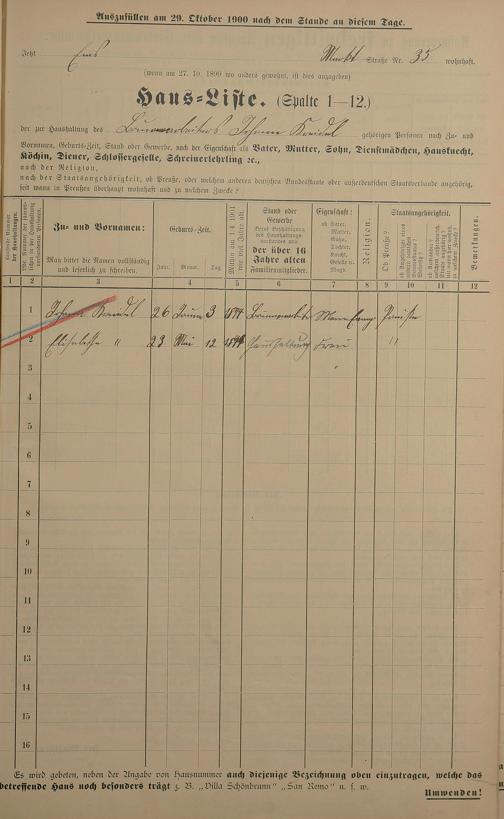 Auszufüllen am 29. Oktober 1900 nach dem Stande an diesem Tage.
Jetzt Ems Markt Straße Nr. 35 wohnhaft.
(wenn am 27. 10. 1899 wo anders gewesen, ist dies anzugeben)
Haus-Liste. (Spalte 1—12.)
der zur Haushaltung des Johann gehörigen Personen nach Zu- und
Vornamen, Geburts-Zeit, Stand oder Gewerbe, nach der Eigenschaft als Vater, Mutter, Sohn, Dienstmädchen, Hausknecht,
Köchin, Diener, Schlossergeselle, Schreinerlehrling ꝛc.,
nach der Religion,
nach der Staatsangehörigkeit, ob Preuße, oder welchem anderen deutschen Bundesstaate oder außerdeutschen Staatsverbande angehörig,
seit wann in Preußen überhaupt wohnhaft und zu welchem Zwecke?
Zu- und Vornamen:
Man bittet die Namen vollständig
und leserlich zu schreiben.
Geburts-Zeit.
Jahr. Monat. Tag.
Stand oder
Gewerbe
der über 16
Jahre alten
Familienmitglieder.
Eigenschaft:
ob Vater,
Mutter,
Sohn,
Tochter,
Knecht,
Geselle o.
Magd.
Religion.
Staatsangehörigkeit.
Ob Preuße?
Bemerkungen.
1 2 3 4 5 6 7 8 9 10 11 12
1 Johann 26 3
2 Elisabetha " 23 Mai 12 Haushaltung Frau "
3
4
5
6
7
8
9
10
11
12
13
14
15
16
Es wird gebeten, neben der Angabe von Hausnummer auch diejenige Bezeichnung oben einzutragen, welche das
betreffende Haus noch besonders trägt z. B. „Villa Schönbrunn" „San Remo" u. s. w.
Umwenden!